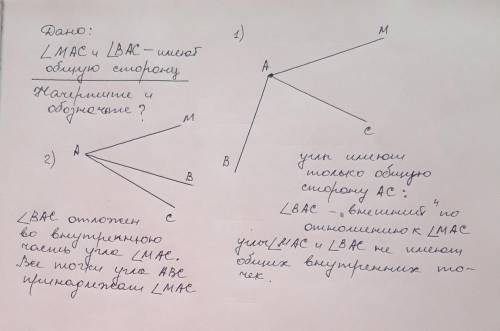 Дано:
∠MAC и ∠BAC – имеют
общую сторону
Начертите и
обозначьте?
1)
M
A
C
B
углы имеют
только общую
сторону AC:
∠BAC – „внешний" по
отношению к ∠MAC
углы ∠MAC и ∠BAC не имеют
общих внутренних то-
чек.
2)
M
A
B
C
∠BAC отложен
во внутреннюю
часть угла ∠MAC.
Все точки угла ABC
принадлежат ∠MAC